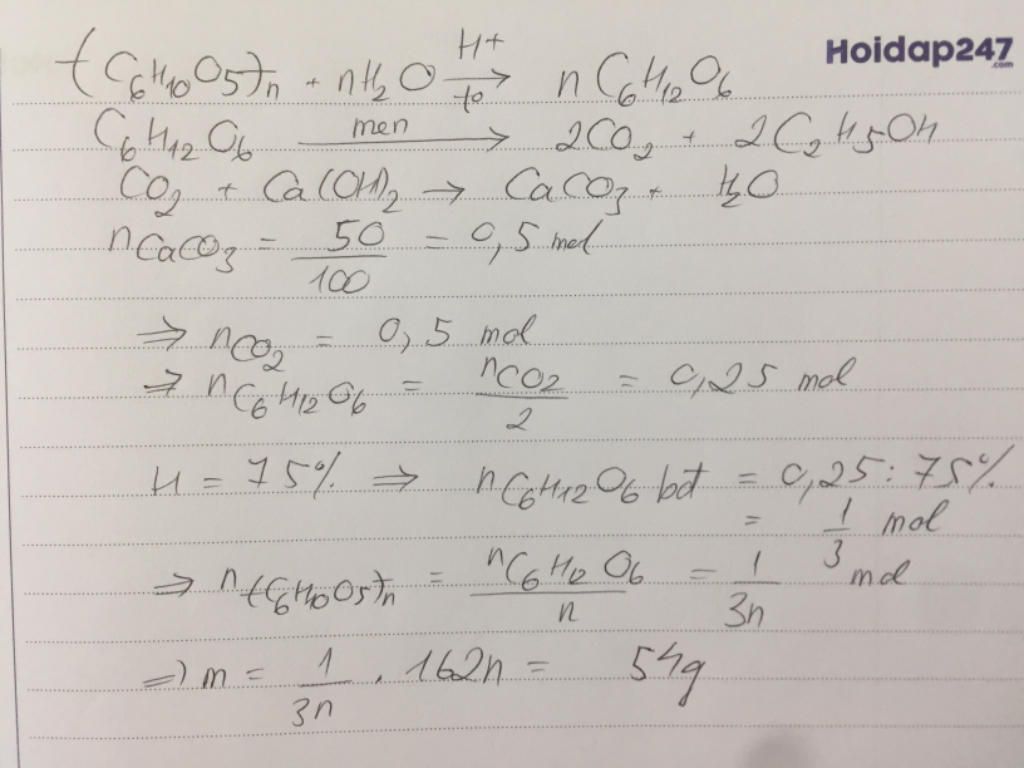 (C6H10O5)n + nH2O H+ → to nC6H12O6
Hoidap247
.com
C6H12O6 men → 2CO2 + 2C2H5OH
CO2 + Ca(OH)2 → CaCO3 + H2O
nCaCO3 = 50/100 = 0,5 mol
⇒ nCO2 = 0,5 mol
⇒ nC6H12O6 = nCO2/2 = 0,25 mol
H = 75% ⇒ nC6H12O6 bđ = 0,25 : 75%
= 1/3 mol
⇒ n(C6H10O5)n = nC6H12O6/n = 1/3n mol
⇒ m = 1/3n . 162n = 54g